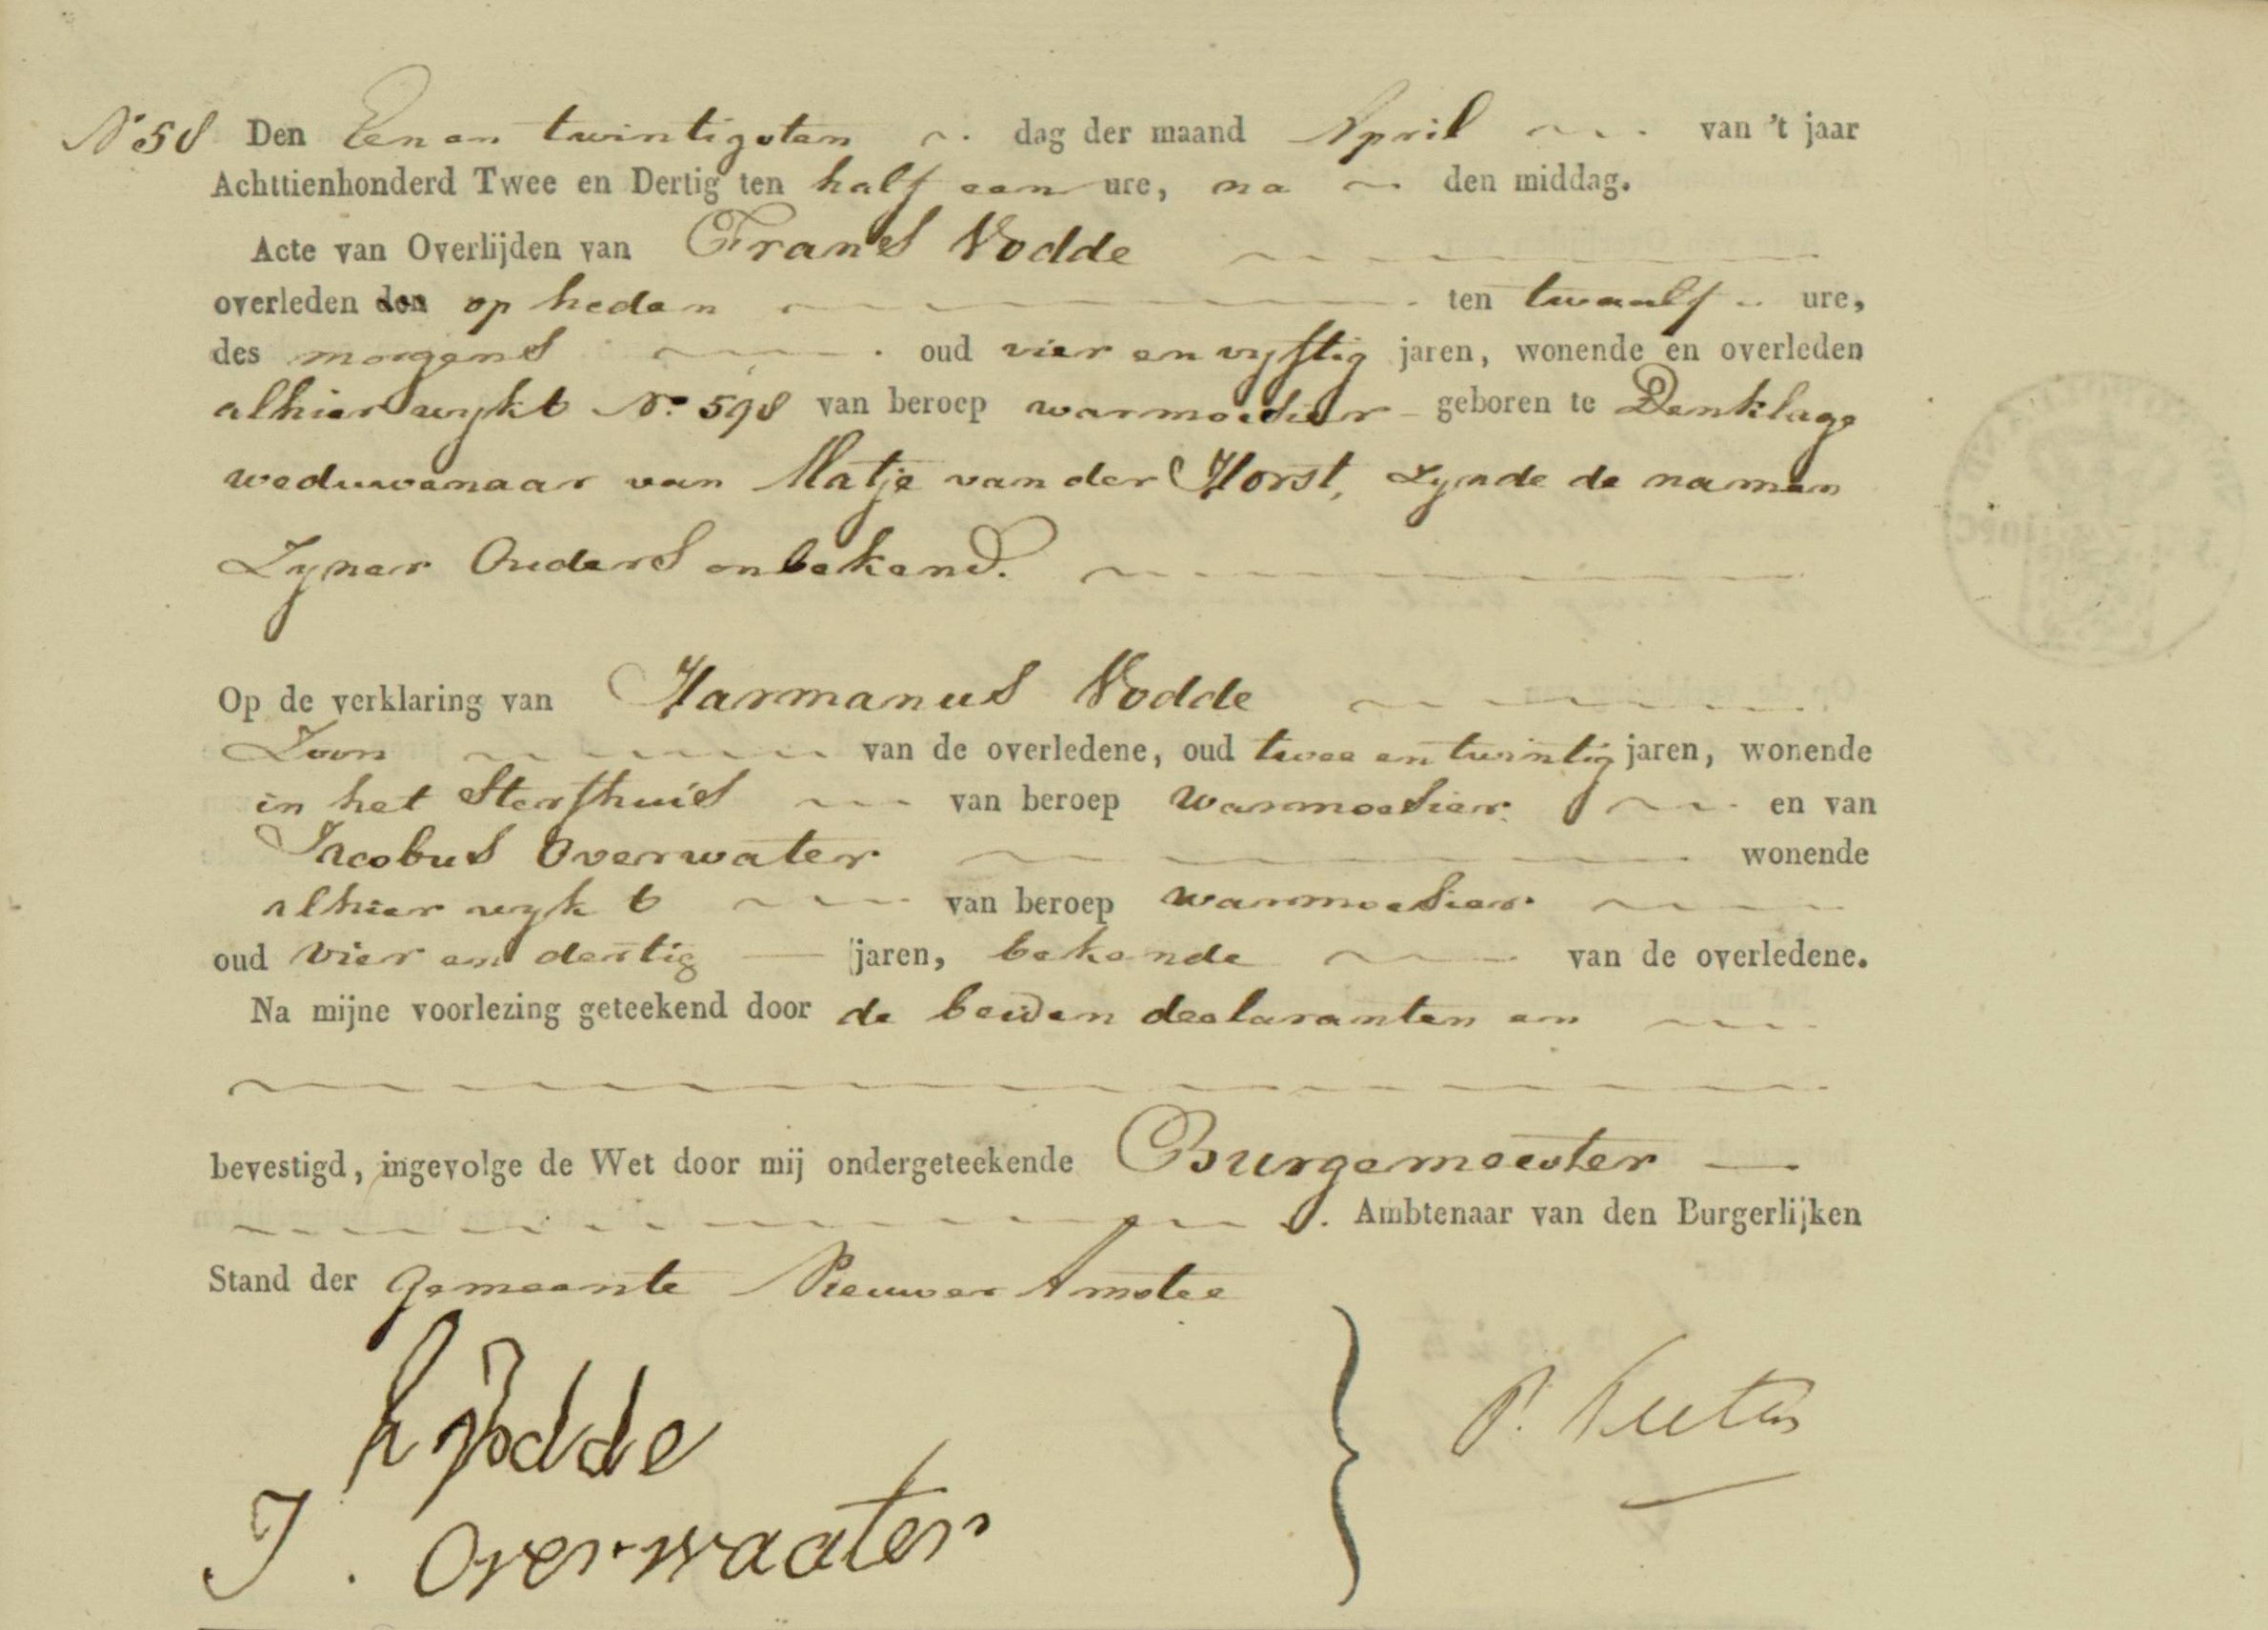 No 58 Den Eenen twintigsten dag der maand April van 't jaar
Achttienhonderd Twee en Dertig ten half een ure, na den middag.
Acte van Overlijden van Frans Vodde
overleden den op heden ten twaalf ure,
des morgens oud vier en vyftig jaren, wonende en overleden
alhier wyk t No 598 van beroep warmoesier geboren te Denklage
weduwenaar van Matje van der Horst, Zynde de namen
Zyner Ouders onbekend.
Op de verklaring van Harmanus Vodde
Zoon van de overledene, oud twee en twintig jaren, wonende
in het Sterfhuis van beroep Warmoesier en van
Jacobus Overwater wonende
alhier wyk t van beroep warmoesier
oud vier en dertig jaren, bekende van de overledene.
Na mijne voorlezing geteekend door de beiden declaranten en
bevestigd, ingevolge de Wet door mij ondergeteekende Burgemeester
Ambtenaar van den Burgerlijken
Stand der Gemeente Nieuwer Amstee
h Vodde
J. Overwaater
P.